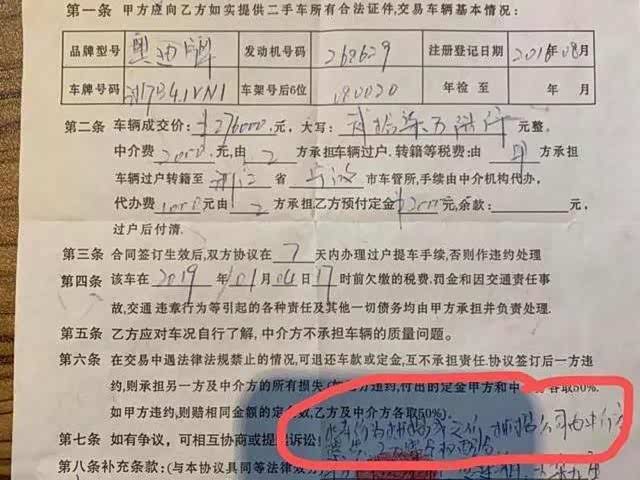 第一条 甲方应向乙方如实提供二手车所有合法证件,交易车辆基本情况:
品牌型号 奥迪牌 发动机号码 268629 注册登记日期 2016年08月
车牌号码 车架号后6位 090020 年检至 年 月
第二条 车辆成交价: 276000.元, 大写: 元整,
中介费 2000 元,由 乙 方承担车辆过户.转籍等税费:由 甲 方承担
车辆过户转籍至 浙江 省 宁波 市车管所,手续由中介机构代办,
代办费 1000 元由 乙 方承担乙方预付定金 元,余款:
过户后付清.
第三条 合同签订生效后,双方协议在 7 天内办理过户提车手续,否则作违约处理
第四条 该车在 2019 年 01 月 04 日 17 时前欠缴的税费.罚金和因交通责任事
故,交通 违章行为等引起的各种责任及其他一切债务均由甲方承担并负责处理.
第五条 乙方应对车况自行了解,中介方不承担车辆的质量问题。
第六条 在交易中遇法律法规禁止的情况,可退还车款或定金,互不承担责任.协议签订后一方违
约,则承担另一方及中介方的所有损失(如乙方违约,付出的定金甲方和中 各取50%.
如甲方违约,则赔相同金额的定 ,乙方及中介方各取50%).
第七条 如有争议,可相互协商或提 诉讼
第八条补充条款:(与本协议具同等法律效力